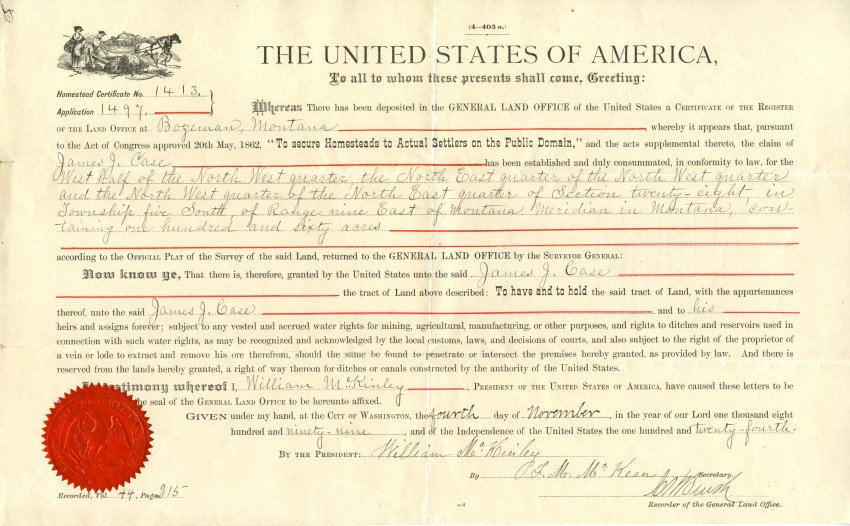 (4—403 a.)
THE UNITED STATES OF AMERICA,
To all to whom these presents shall come, Greeting:
Homestead Certificate No. 1413.
Application 1497.
Whereas There has been deposited in the GENERAL LAND OFFICE of the United States a Certificate of the Register
of the Land Office at Bozeman, Montana, whereby it appears that, pursuant
to the Act of Congress approved 20th May, 1862, "To secure Homesteads to Actual Settlers on the Public Domain," and the acts supplemental thereto, the claim of
James J. Case has been established and duly consummated, in conformity to law, for the
West half of the North West quarter, the North East quarter of the North West quarter
and the North West quarter of the North East quarter of Section twenty-eight, in
Township five South, of Range nine East of Montana Meridian in Montana, con-
taining one hundred and sixty acres
according to the Official Plat of the Survey of the said Land, returned to the GENERAL LAND OFFICE by the Surveyor General:
Now know ye, That there is, therefore, granted by the United States unto the said James J. Case
the tract of Land above described: To have and to hold the said tract of Land, with the appurtenances
thereof, unto the said James J. Case and to his
heirs and assigns forever; subject to any vested and accrued water rights for mining, agricultural, manufacturing, or other purposes, and rights to ditches and reservoirs used in
connection with such water rights, as may be recognized and acknowledged by the local customs, laws, and decisions of courts, and also subject to the right of the proprietor of
a vein or lode to extract and remove his ore therefrom, should the same be found to penetrate or intersect the premises hereby granted, as provided by law. And there is
reserved from the lands hereby granted, a right of way thereon for ditches or canals constructed by the authority of the United States.
In testimony whereof I, William McKinley, President of the United States of America, have caused these letters to be
the seal of the General Land Office to be hereunto affixed.
Given under my hand, at the City of Washington, the fourth day of November, in the year of our Lord one thousand eight
hundred and ninety-nine, and of the Independence of the United States the one hundred and twenty-fourth.
By the President: William McKinley
By F. M. McKean Secretary.
Recorded, Vol. 44, Page 215
Recorder of the General Land Office.